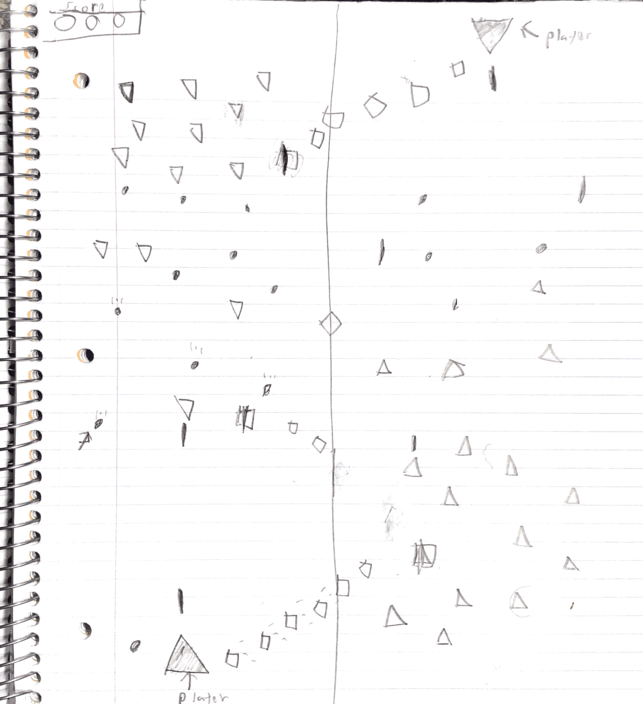 Score
player
player